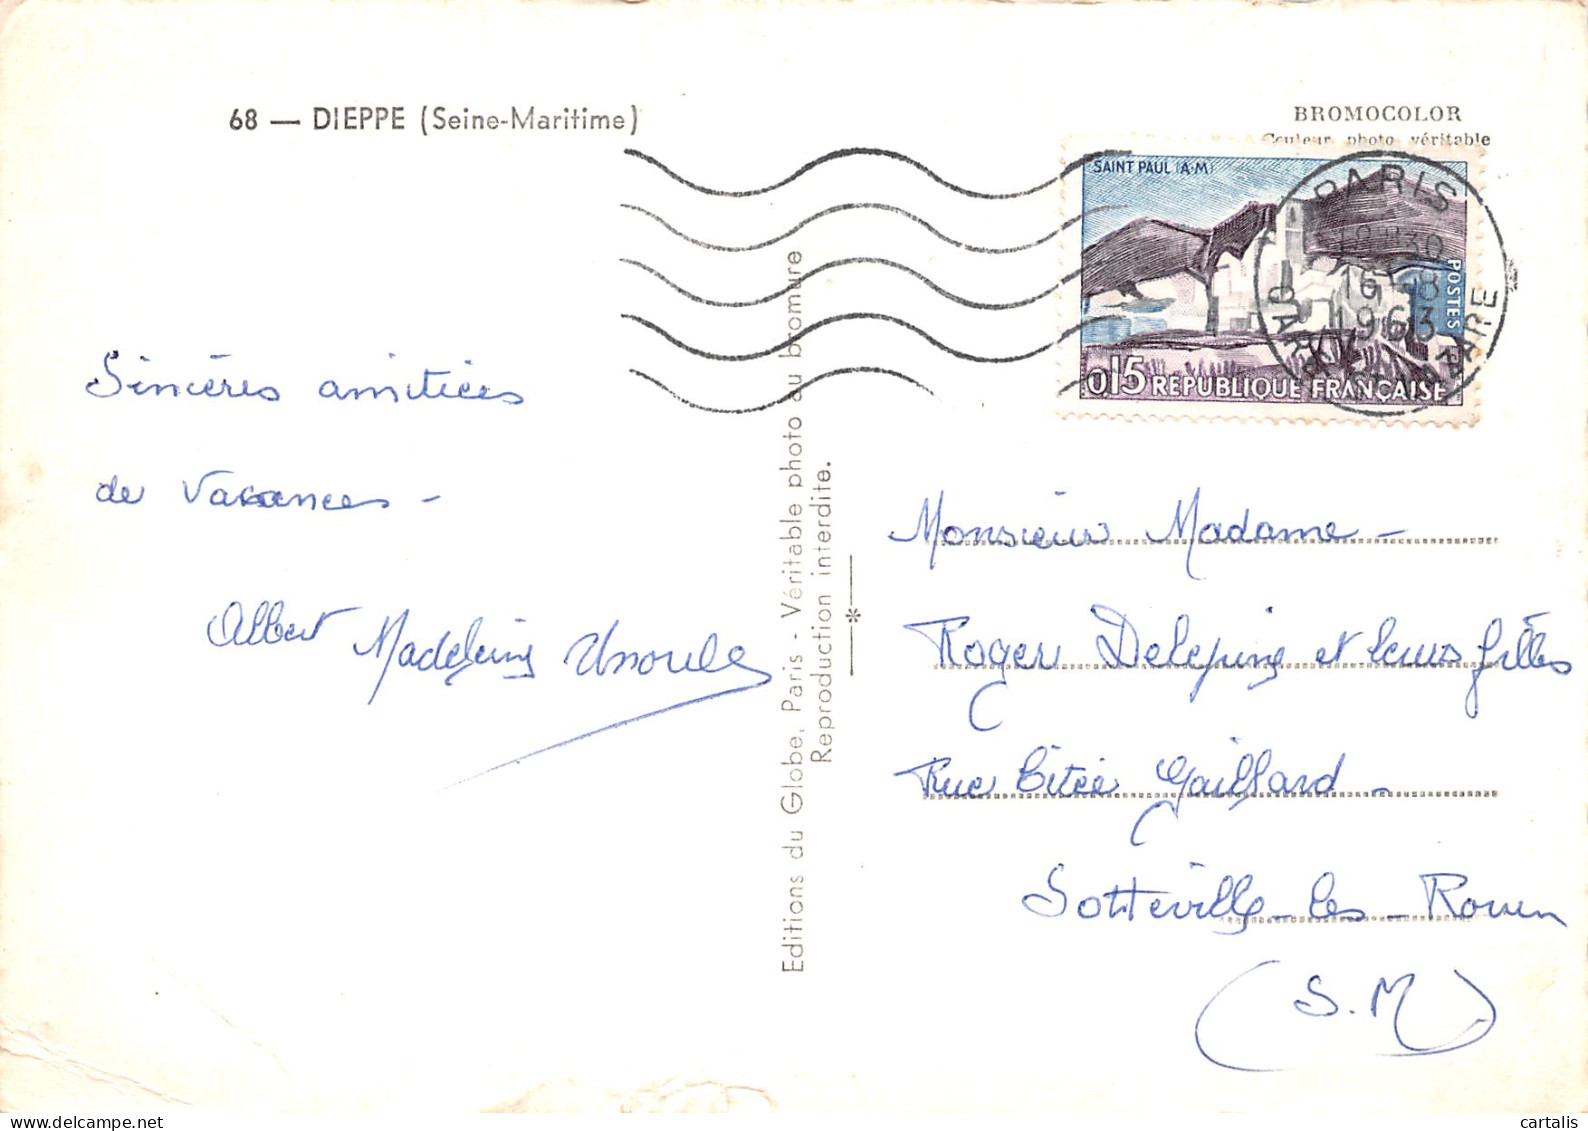 68 — DIEPPE (Seine-Maritime)
BROMOCOLOR
Couleur photo véritable
SAINT PAUL (A-M)
POSTES
0,15 REPUBLIQUE FRANÇAISE
PARIS
16-8
1963
GARE
Sincères amitiées
de Vacances -
Albert Madeleine
Editions du Globe, Paris - Véritable photo au bromure
Reproduction interdite.
Monsieur Madame -
Roger Delepine et leurs filles
Rue Gaillard -
Sotteville-les-Rouen
(S.M)
cartalis